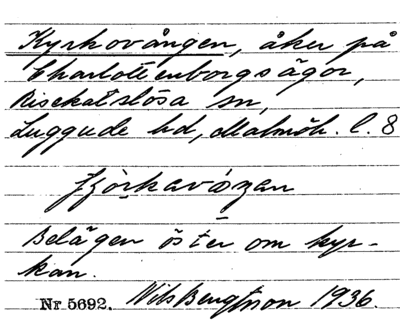 Kyrkovången, åker på
Charlottenborgs ägor,
Risekatslösa sn,
Luggude hd, Malmöh. l. 8
Belägen öster om kyr-
kan.
Nr 5692. Nils Bengtsson 1936.